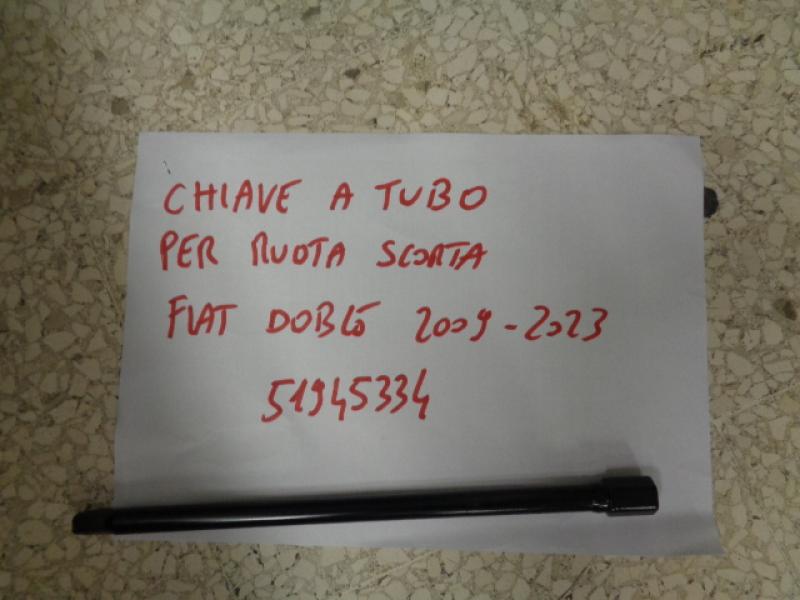 CHIAVE A TUBO
PER RUOTA SCORTA
FIAT DOBLÒ 2009-2023
51945334